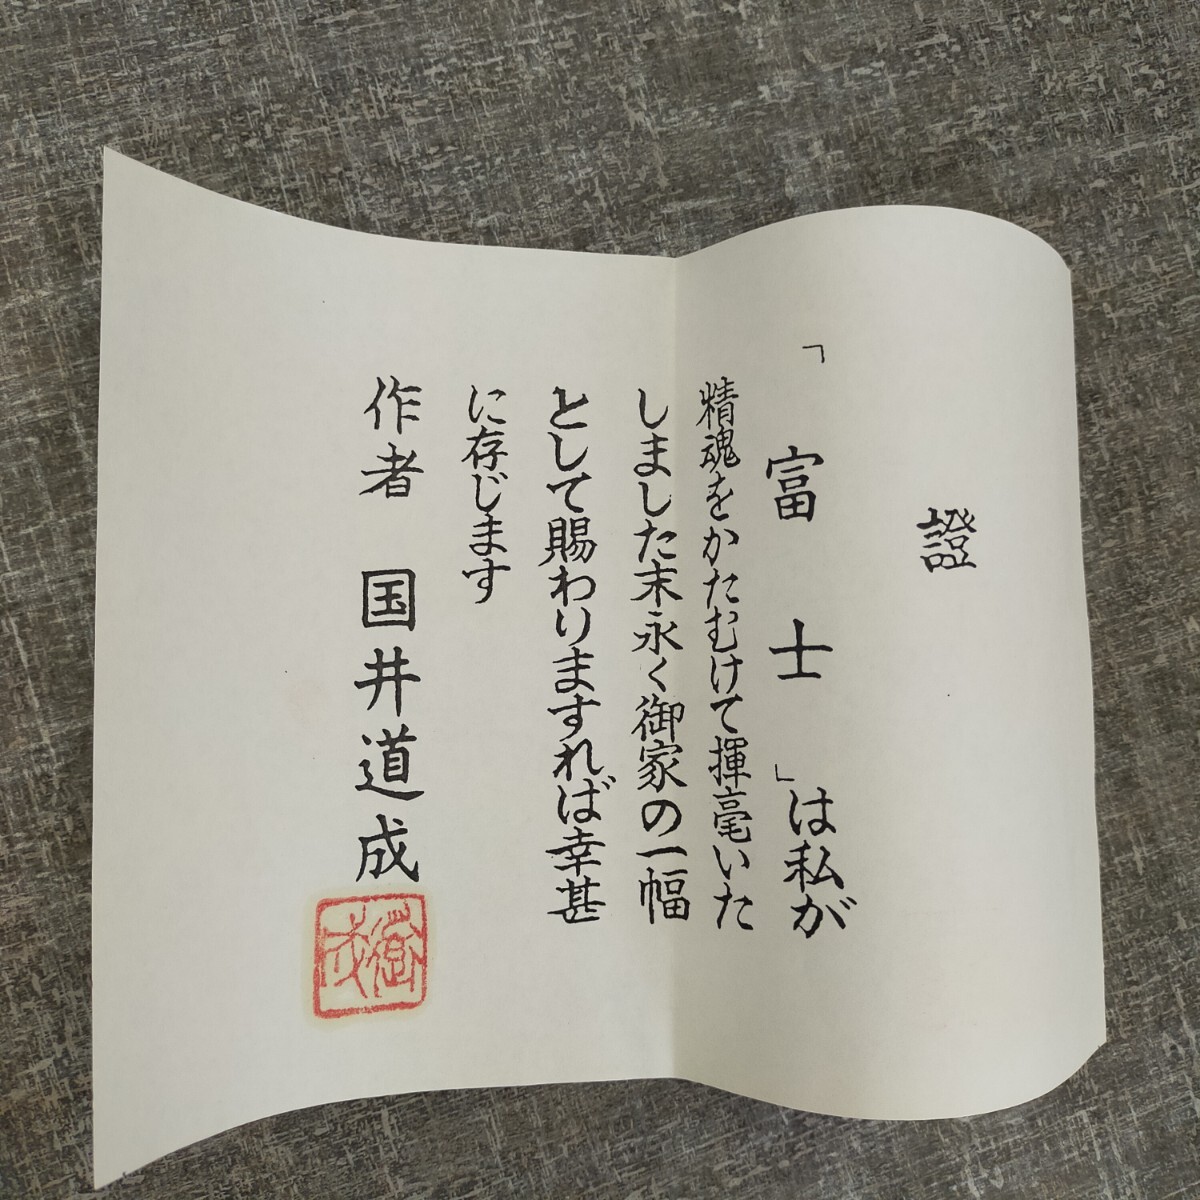 證
「富士」は私が
精魂をかたむけて揮毫いた
しました末永く御家の一幅
として賜わりますれば幸甚
に存じます
作者 国井道成
道成